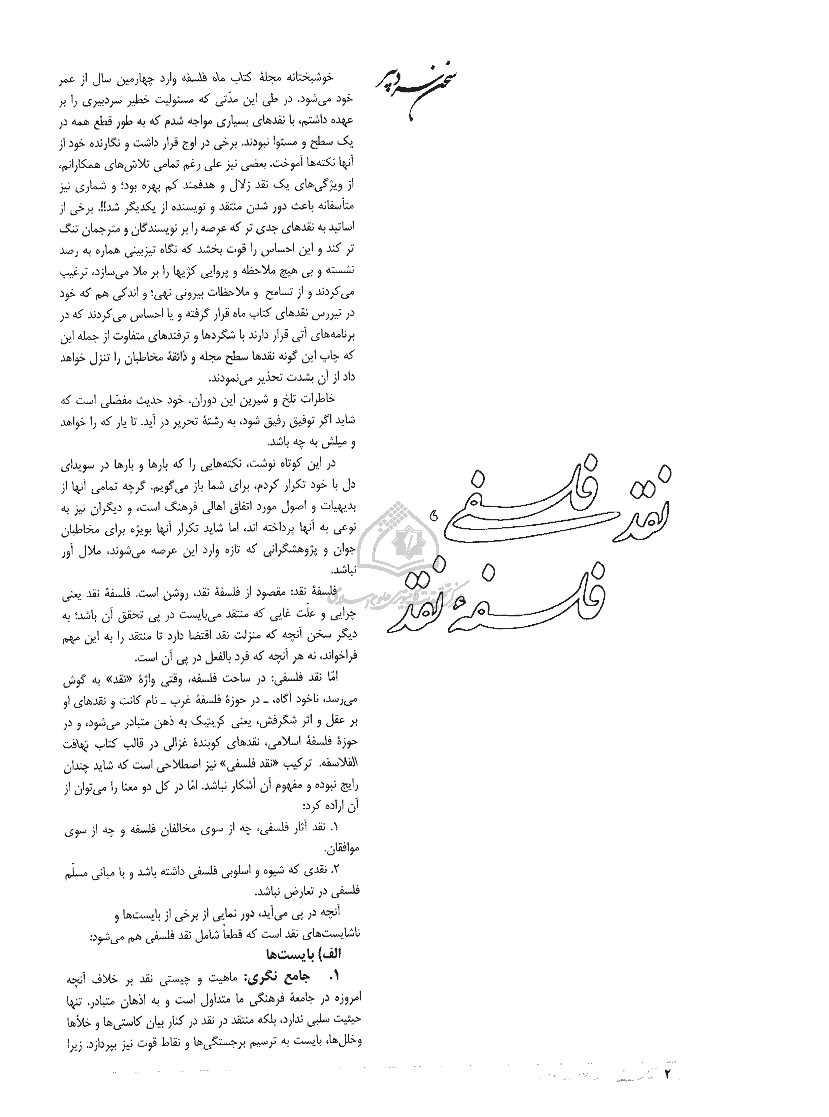 سخن سردبیر
نقد فلسفی،
فلسفهٔ نقد
خوشبختانه مجلهٔ کتاب ماه فلسفه وارد چهارمین سال از عمر
خود می‌شود. در طی این مدّتی که مسئولیت خطیر سردبیری را بر
عهده داشتم، با نقدهای بسیاری مواجه شدم که به طور قطع همه در
یک سطح و مستوا نبودند. برخی در اوج قرار داشت و نگارنده خود از
آنها نکته‌ها آموخت. بعضی نیز علی رغم تمامی تلاش‌های همکارانم،
از ویژگی‌های یک نقد زلال و هدفمند کم بهره بود؛ و شماری نیز
متأسفانه باعث دور شدن منتقد و نویسنده از یکدیگر شد!!. برخی از
اساتید به نقدهای جدی تر که عرصه را بر نویسندگان و مترجمان تنگ
تر کند و این احساس را قوت بخشد که نگاه تیزبینی هماره به رصد
نشسته و بی هیچ ملاحظه و پروایی کژیها را بر ملا می‌سازد، ترغیب
می‌کردند و از تسامح و ملاحظات بیرونی نهی؛ و اندکی هم که خود
در تیررس نقدهای کتاب ماه قرار گرفته و یا احساس می‌کردند که در
برنامه‌های آتی قرار دارند با شگردها و ترفندهای متفاوت از جمله این
که چاپ این گونه نقدها سطح مجله و ذائقهٔ مخاطبان را تنزل خواهد
داد از آن بشدت تحذیر می‌نمودند.
خاطرات تلخ و شیرین این دوران، خود حدیث مفصّلی است که
شاید اگر توفیق رفیق شود، به رشتهٔ تحریر در آید. تا یار که را خواهد
و میلش به چه باشد.
در این کوتاه نوشت، نکته‌هایی را که بارها و بارها در سویدای
دل با خود تکرار کردم، برای شما باز می‌گویم. گرچه تمامی آنها از
بدیهیات و اصول مورد اتفاق اهالی فرهنگ است، و دیگران نیز به
نوعی به آنها پرداخته اند، اما شاید تکرار آنها بویژه برای مخاطبان
جوان و پژوهشگرانی که تازه وارد این عرصه می‌شوند، ملال آور
نباشد.
فلسفهٔ نقد: مقصود از فلسفهٔ نقد، روشن است. فلسفهٔ نقد یعنی
چرایی و علّت غایی که منتقد می‌بایست در پی تحقق آن باشد؛ به
دیگر سخن آنچه که منزلت نقد اقتضا دارد تا منتقد را به این مهم
فراخواند، نه هر آنچه که فرد بالفعل در پی آن است.
امّا نقد فلسفی: در ساحت فلسفه، وقتی واژهٔ «نقد» به گوش
می‌رسد، ناخود آگاه، ـ در حوزهٔ فلسفهٔ غرب ـ نام کانت و نقدهای او
بر عقل و اثر شگرفش، یعنی کریتیک به ذهن متبادر می‌شود، و در
حوزهٔ فلسفهٔ اسلامی، نقدهای کوبندهٔ غزالی در قالب کتاب تهافت
الفلاسفه. ترکیب «نقد فلسفی» نیز اصطلاحی است که شاید چندان
رایج نبوده و مفهوم آن آشکار نباشد. امّا در کل دو معنا را می‌توان از
آن اراده کرد:
۱. نقد آثار فلسفی، چه از سوی مخالفان فلسفه و چه از سوی
موافقان.
۲. نقدی که شیوه و اسلوبی فلسفی داشته باشد و با مبانی مسلّم
فلسفی در تعارض نباشد.
آنچه در پی می‌آید، دور نمایی از برخی از بایست‌ها و
ناشایست‌های نقد است که قطعاً شامل نقد فلسفی هم می‌شود:
الف) بایست‌ها
۱. جامع نگری: ماهیت و چیستی نقد بر خلاف آنچه
امروزه در جامعهٔ فرهنگی ما متداول است و به اذهان متبادر، تنها
حیثیت سلبی ندارد، بلکه منتقد در نقد در کنار بیان کاستی‌ها و خلأها
وخلل‌ها، بایست به ترسیم برجستگی‌ها و نقاط قوت نیز بپردازد. زیرا
۲